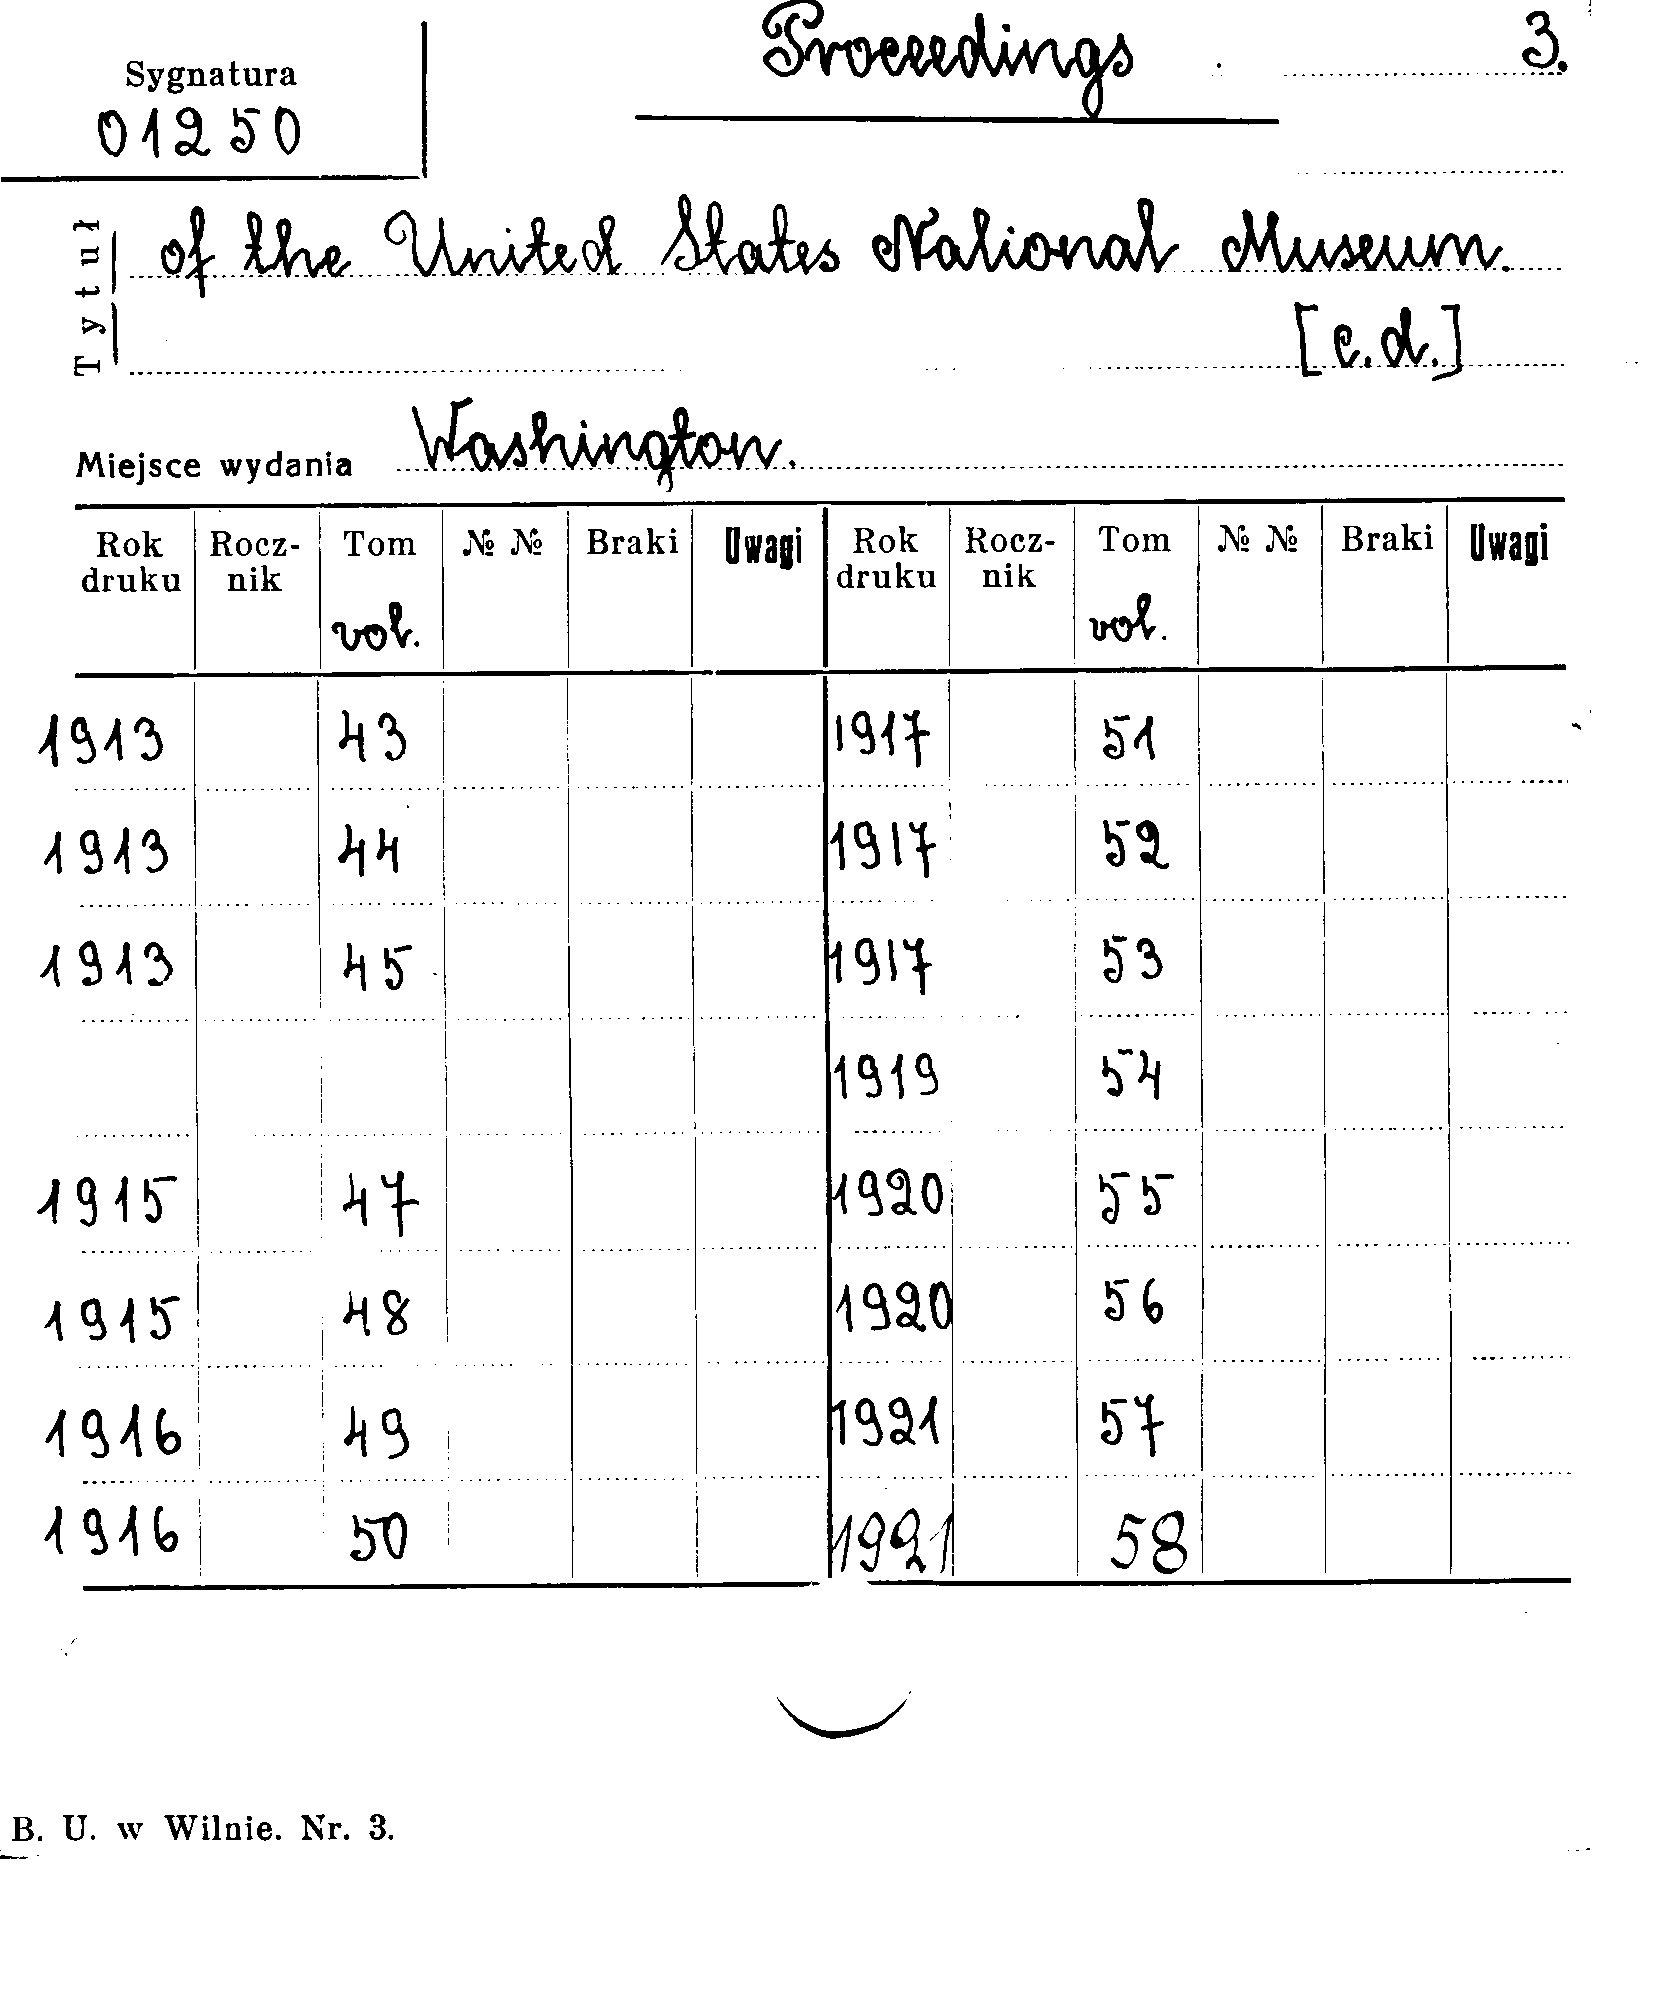 Proceedings 3.
Sygnatura
01250
Tytuł
of the United States National Museum.
[c.d.]
Miejsce wydania Washington.
Rok druku Rocz-nik Tom vol. № № Braki Uwagi Rok druku Rocz-nik Tom vol. № № Braki Uwagi
1913 43 1917 51
1913 44 1917 52
1913 45 1917 53
1919 54
1915 47 1920 55
1915 48 1920 56
1916 49 1921 57
1916 50 1921 58
B. U. w Wilnie. Nr. 3.